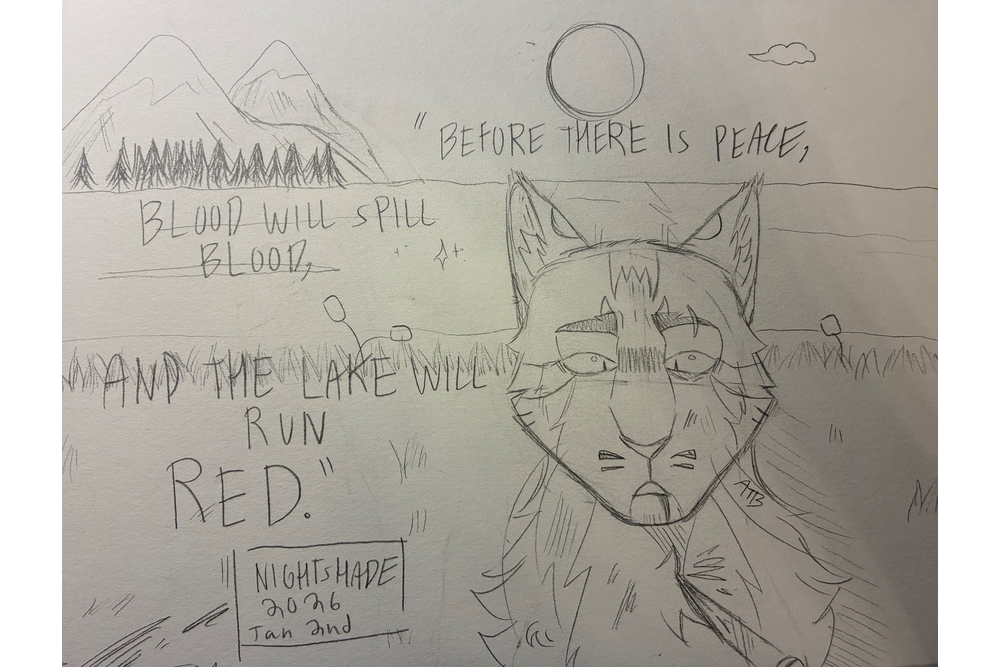 "BEFORE THERE IS PEACE,
BLOOD WILL SPILL
BLOOD,
AND THE LAKE WILL
RUN
RED."
ATB
NIGHTSHADE
2026
Jan 2nd